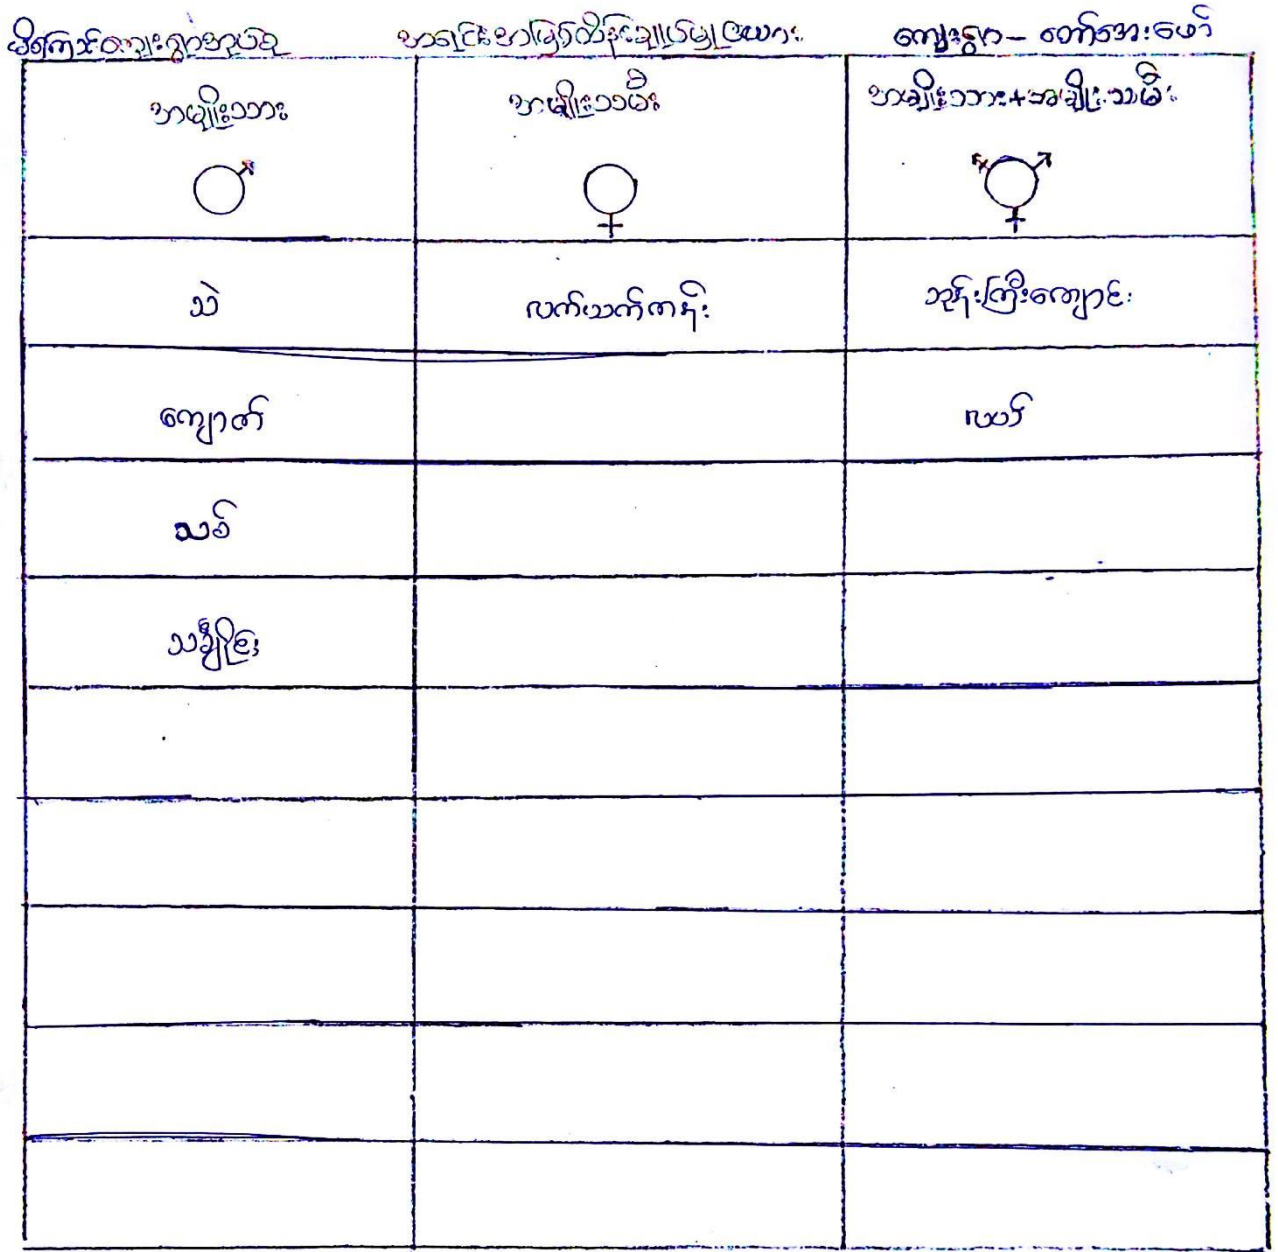 မိကြောင်ကျေးရွာအုပ်စု အရင်းအမြစ်ထိန်းချုပ်မှုဇယား ကျေးရွာ - တော်အေးဖော်
အမျိုးသား အမျိုးသမီး အမျိုးသား+အမျိုးသမီး
သဲ လက်ယက်ကန်း ဘုန်းကြီးကျောင်း
ကျောက် လယ်
သစ်
သင်္ချိုင်း